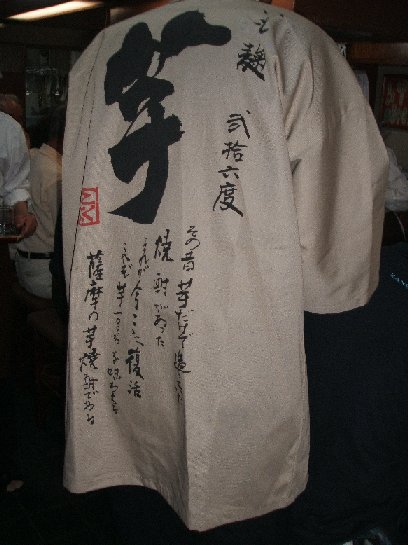 芋麹
弐拾六度
芋
その昔 芋だけで造った
焼酎があった
それが今ここに復活
薩摩の芋焼酎である